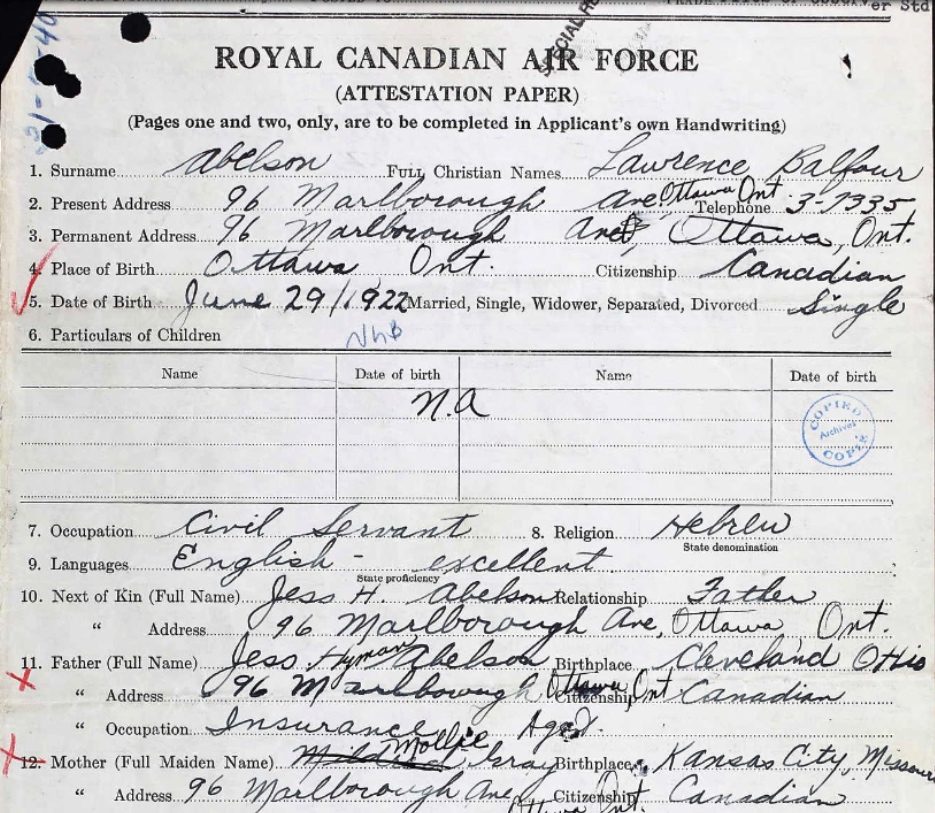 er Std
31-7-40
SPECIAL RE
ROYAL CANADIAN AIR FORCE
(ATTESTATION PAPER)
(Pages one and two, only, are to be completed in Applicant's own Handwriting)
1. Surname Abelson Full Christian Names Lawrence Balfour
2. Present Address 96 Marlborough Ave Ottawa Ont Telephone 3-7335
3. Permanent Address 96 Marlborough Ave, Ottawa, Ont.
4. Place of Birth Ottawa Ont. Citizenship Canadian
5. Date of Birth June 29/1922 Married, Single, Widower, Separated, Divorced Single
6. Particulars of Children
Name Date of birth Name Date of birth
N.A
COPIED
Archives
COPIE
7. Occupation Civil Servant 8. Religion Hebrew
State denomination
9. Languages English - excellent
State proficiency
10. Next of Kin (Full Name) Jess H. Abelson Relationship Father
" Address 96 Marlborough Ave, Ottawa, Ont.
11. Father (Full Name) Jess Hyman Abelson Birthplace Cleveland OHio
" Address 96 Marlborough Ottawa Ont Citizenship Canadian
" Occupation Insurance Agt.
12. Mother (Full Maiden Name) Mollie Gray Birthplace Kansas City, Missouri
" Address 96 Marlborough Ave Citizenship Canadian
Ottawa Ont.